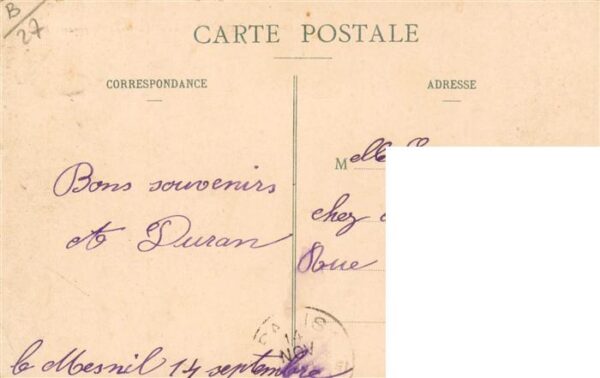 B/27
CARTE POSTALE
CORRESPONDANCE
ADRESSE
Bons souvenirs
Duran
Melle
chez
Rue
14
NOV
le Mesnil 14 septembre